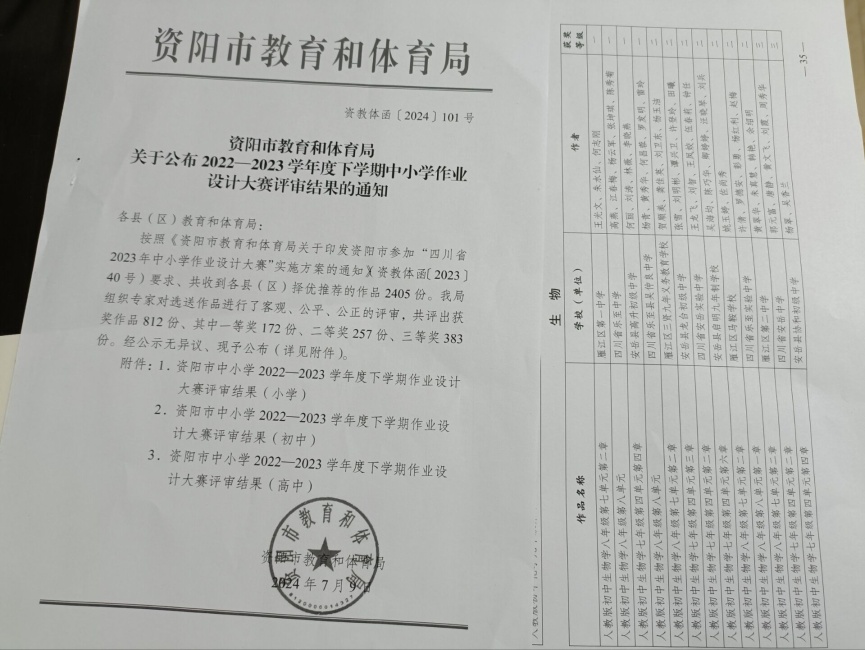 资阳市教育和体育局
资教体函〔2024〕101号
资阳市教育和体育局
关于公布2022—2023学年度下学期中小学作业
设计大赛评审结果的通知
各县（区）教育和体育局：
按照《资阳市教育和体育局关于印发资阳市参加“四川省
2023年中小学作业设计大赛”实施方案的通知》（资教体函〔2023〕
40号）要求、共收到各县（区）择优推荐的作品2405份。我局
组织专家对选送作品进行了客观、公平、公正的评审，共评出获
奖作品812份、其中一等奖172份、二等奖257份、三等奖383
份。经公示无异议、现予公布（详见附件）。
附件：1．资阳市中小学2022—2023学年度下学期作业设计
大赛评审结果（小学）
2．资阳市中小学2022—2023学年度下学期作业设
计大赛评审结果（初中）
3．资阳市中小学2022—2023学年度下学期作业设
计大赛评审结果（高中）
资阳市教育和体育局
2024年7月9日
资阳市教育和体育局
生物
作品名称 学校（单位） 作者 获奖等级
人教版初中生物学八年级第七单元第二章 雁江区第一中学 王光文、朱水仙、何志刚 一
人教版初中生物学八年级第八单元 四川省乐至中学 高燕、江春梅、杨云军、张坤琪、陈秀菊 一
人教版初中生物学七年级第四单元第四章 安岳县高升初级中学 何丽、刘涛、林薇、李晓燕 一
人教版初中生物学八年级第八单元 四川省乐至县吴仲良中学 杨青、黄秀华、何昌蓉、罗发明、雷玲 一
人教版初中生物学八年级第七单元第二章 雁江区三贤九年义务教育学校 贺顺美、龚佳英、刘卫东、杨玉洁 二
人教版初中生物学七年级第四单元第三章 安岳县龙台初级中学 张雪、刘明彬、谭兴卫、许登玲、田曦 二
人教版初中生物学七年级第四单元第二章 四川省安岳实验中学 王龙飞、刘智、王凤姣、伍春莉、钟任 二
人教版初中生物学七年级第四单元第六章 安岳县启明九年制学校 吴海均、陈巧华、卿婷婷、汪晓琴、刘兵 二
人教版初中生物学八年级第七单元第二章 雁江区马鞍学校 姚玉婷、张尚秀 二
人教版初中生物学八年级第八单元第二章 四川省乐至实验中学 许清、罗德安、杨红利、赵梅 二
人教版初中生物学八年级第七单元第二章 雁江区第二中学 黄翠华、韩艳、余绍明 二
人教版初中生物学七年级第四单元第二章 四川省安岳中学 郭元富、唐静、黄文飞、刘霞、周秀华 三
人教版初中生物学七年级第四单元第四章 安岳县协和初级中学 杨军、吴香兰 三
—35—